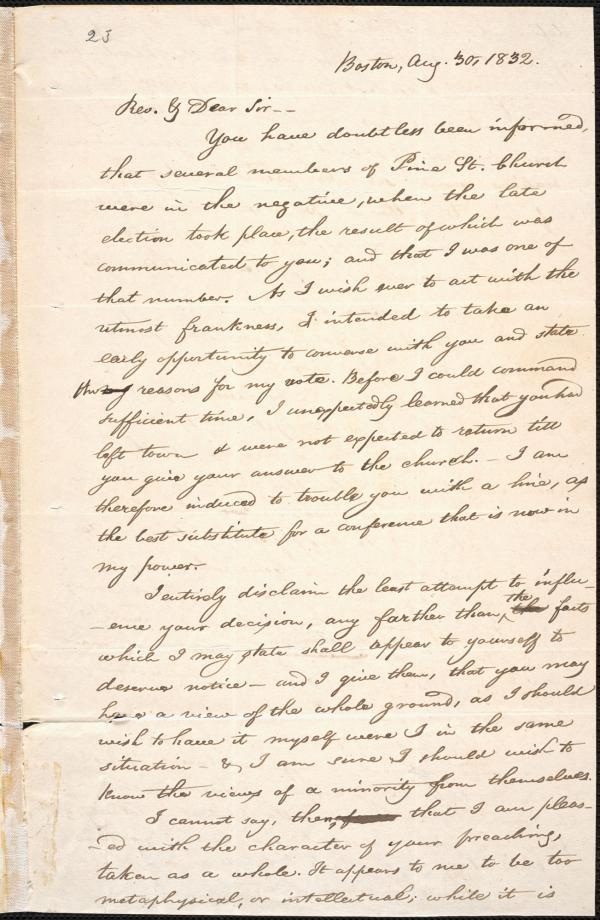 23
Boston, Aug. 30, 1832.
Rev. & Dear Sir--
You have doubtless been informed,
that several members of Pine St. Church
were in the negative, when the late
election took place, the result of which was
communicated to you; and that I was one of
that number. As I wish ever to act with the
utmost frankness, I intended to take an
early opportunity to converse with you and state
the reasons for my vote. Before I could command
sufficient time, I unexpectedly learned that you had
left town & were not expected to return till
you give your answer to the church. - I am
therefore induced to trouble you with a line, as
the best substitute for a conference that is now in
my power.
I entirely disclaim the least attempt to influ-
-ence your decision, any farther than, the facts
which I may state shall appear to yourself to
deserve notice - and I give them, that you may
have a view of the whole ground, as I should
wish to have it myself were I in the same
situation - & I am sure I should wish to
know the views of a minority from themselves.
I cannot say, then, that I am pleas-
-ed with the character of your preaching,
taken as a whole. It appears to me to be too
metaphysical, or intellectual; while it is